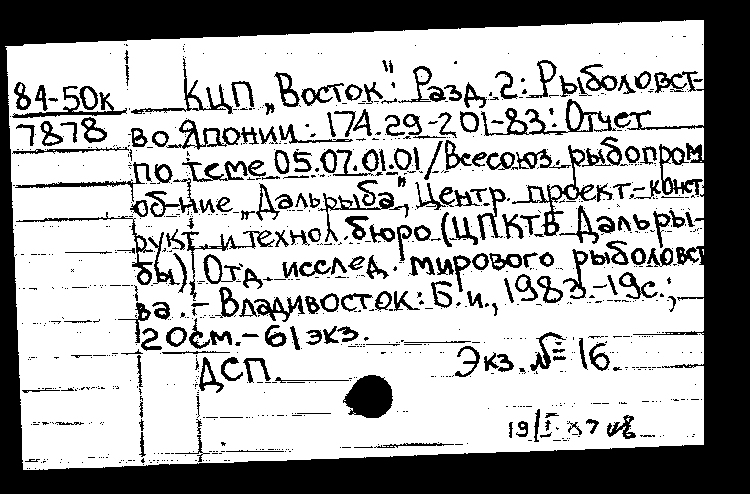 84-50к КЦП „Восток": Разд. 2: Рыболовст-
7878 во Японии: 174.29-201-83: Отчет
по теме 05.07.01.01/Всесоюз. рыбопром
об-ние „Дальрыба", Центр. проект.-конст
рукт. и технол. бюро (ЦПКТБ Дальры-
бы), Отд. исслед. мирового рыболовст
ва. - Владивосток: Б.и., 1983.-19с.;
20см.-61экз.
ДСП. Экз. № 16.
19/I